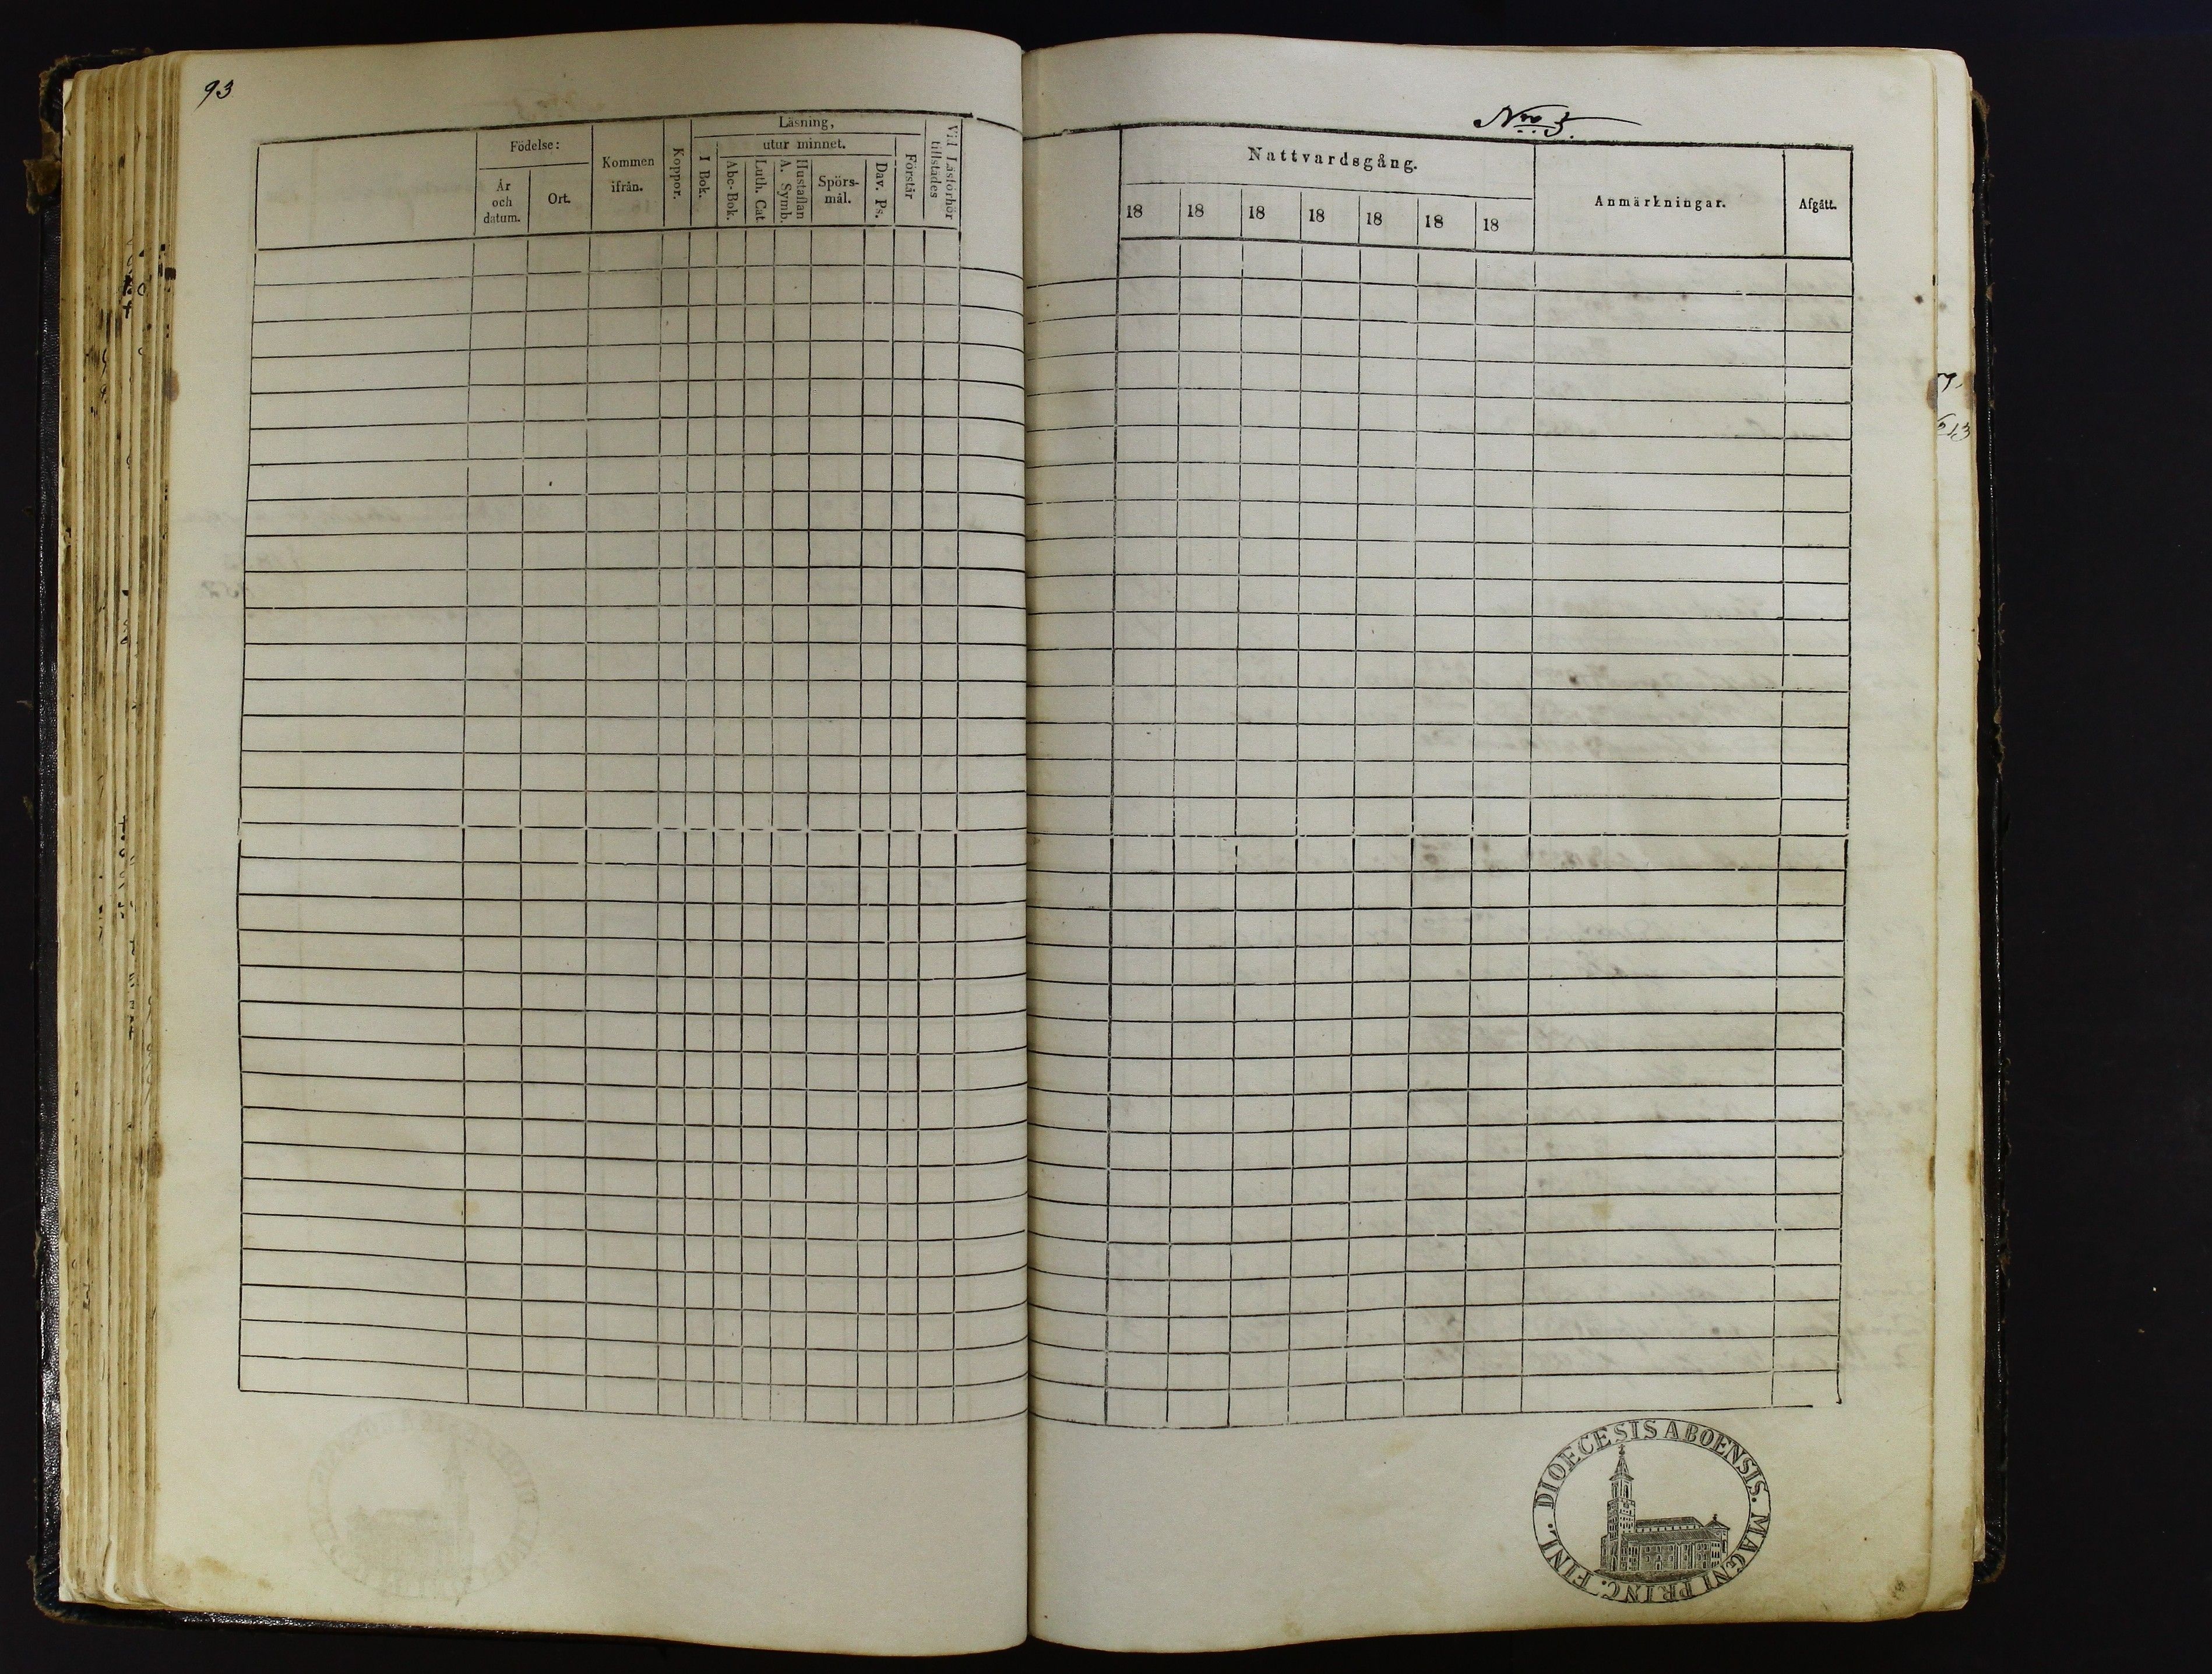 93
Födelse:
År
och
datum.
Ort.
Kommen
ifrån.
Koppor.
Läsning,
I Bok.
utur minnet.
Abc-Bok.
Luth. Cat
Hustaflan
A. Symb.
Spörs-
mål.
Dav. Ps.
Förstår
Vid Läsförhör
tillstades
Nro 5.
Nattvardsgång.
18 18 18 18 18 18 18
Anmärkningar.
Afgått.
DIOECESIS ABOENSIS. MAGNI PRINC. FINL.